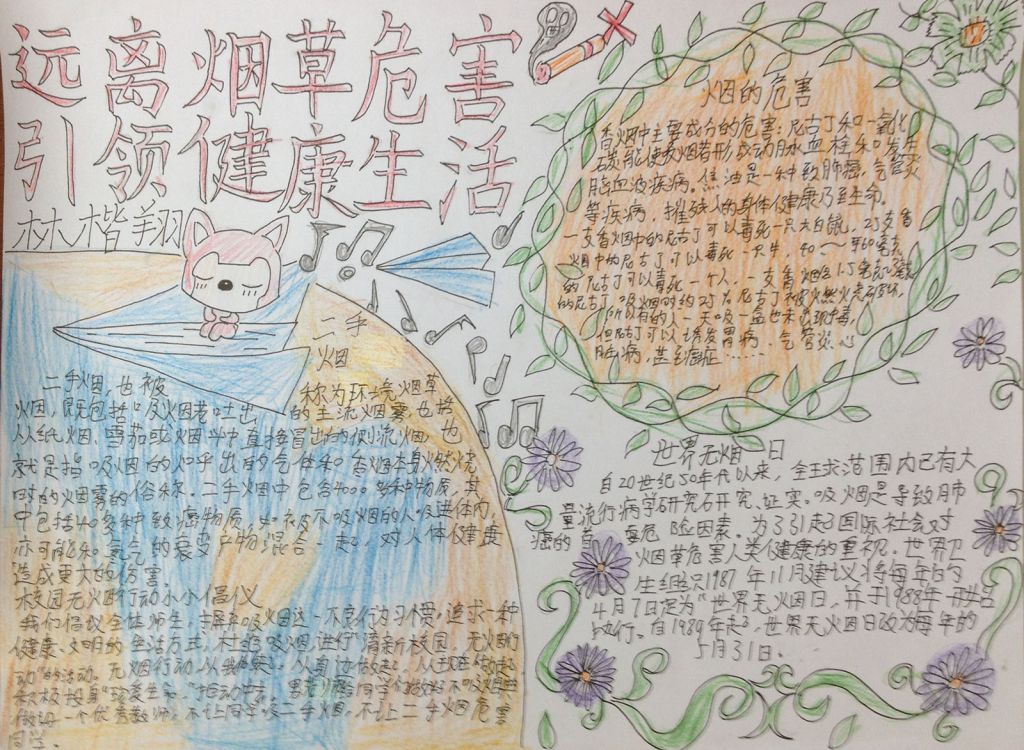 远离烟草危害
引领健康生活
林楷翔
烟的危害
香烟中主要成分的危害：尼古丁和一氧化
碳能使吸烟者形成动脉血栓和发生
脑血液疾病。焦油是一种致肺癌，气管炎
等疾病，摧残人的身体健康乃至生命。
一支香烟中的尼古丁可以毒死一只大白鼠，25支香
烟中的尼古丁可以毒死一只牛，40～60毫克
的尼古丁可以毒死一个人，一支香烟含1.5毫克
的尼古丁，吸烟时的
所以有的人一天吸一盒也未出现中毒，
但尼古丁可以诱发胃病，气管炎、心
肺病，甚至癌症……
二手
烟
二手烟，也被 称为环境烟草
烟，既包括吸烟者吐出 的主流烟雾，也括
从纸烟、雪茄或烟斗中直接冒出的侧流烟，也
就是指吸烟的人呼出的气体和香烟本身燃烧
时的烟雾的俗称。二手烟中包含4000多种物质，其
中包括40多种致癌物质，如被不吸烟的人吸进体内，
亦可能和氡气的衰变产物混合 一起，对人体健康
造成更大的伤害。
校园无烟行动小小倡议
我们倡议全体师生，摒弃吸烟这一不良行为习惯，追求一种
健康、文明的生活方式，杜绝吸烟，进行“清新校园，无烟行
动”的活动。无烟行动，从我做起，从身边做起，从现在做起
积极投身“珍爱生命， 同学们做好不吸烟
做 一个优秀教师，不让同学吸二手烟，不让二手烟危害
同学。
世界无烟 日
自20世纪50年代以来，全球范围内已有大
量流行病学研究研究证实。吸烟是导致肺
癌的首 要危 险因素。为了引起国际社会对
烟草危害人类健康的重视。世界卫
生组织1987年11月建议将每年的
4月7日定为“世界无烟日，并于1988年开始
执行。自1989年起，世界无烟日改为每年的
5月31日。